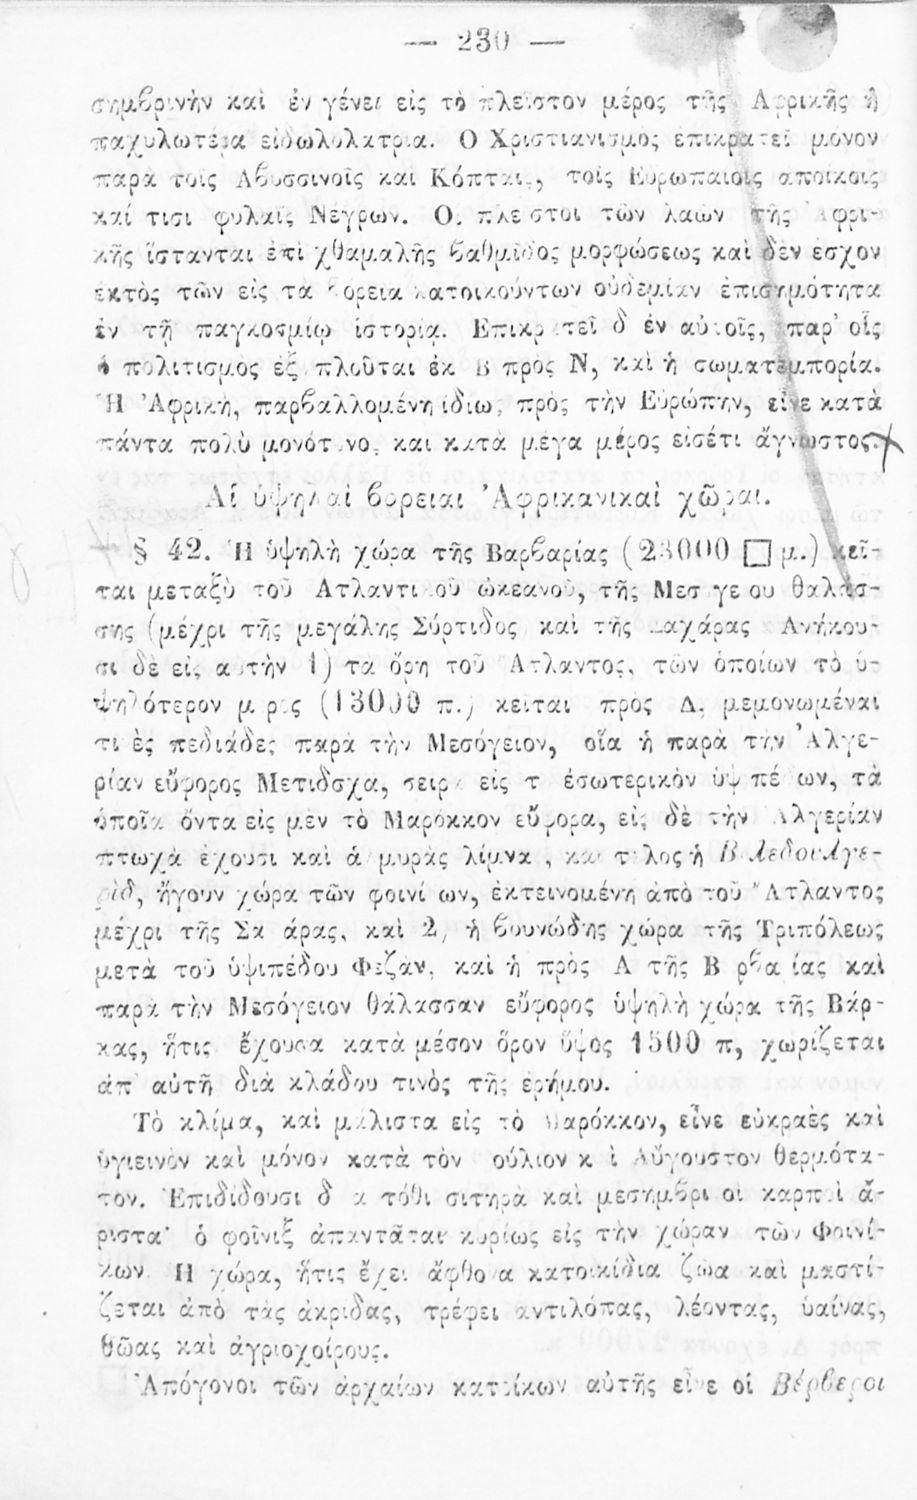 — 230 —
σημβρινὴν καὶ ἐν γένει εἰς τὸ πλεῖστον μέρος τῆς Αφρικῆς ἡ
παχυλωτέρα εἰδωλολατρια. Ο Χριστιανισμος ἐπικρατεῖ μόνον
παρὰ τοῖς Αβυσσινοῖς καὶ Κόπταις, τοῖς Εὐρωπαίοις ἀποίκοις
καί τισι φυλαῖς Νέγρων. Οἱ πλεῖστοι τῶν λαῶν τῆς Ἀφρι-
κῆς ἵστανται ἐπὶ χθαμαλῆς βαθμῖδος μορφώσεως καὶ δὲν ἔσχον
ἐκτὸς τῶν εἰς τα βορεια κατοικούντων οὐδεμίαν ἐπισημότητα
ἐν τῇ παγκοσμίῳ ἱστορίᾳ. Επικρατεῖ δ ἐν αὐτοῖς, παρ' οἷς
ὁ πολιτισμὸς ἐξαπλοῦται ἐκ Β πρὸς Ν, καὶ ἡ σωματεμπορία.
Ἡ Ἀφρικὴ, παρβαλλομένη ἰδίως πρὸς τὴν Εὐρώπην, εἶνε κατὰ
πάντα πολὺ μονότονος καὶ κατὰ μέγα μέρος εἰσέτι ἄγνωστος.
Αἱ ὑψηλαὶ βόρειαι Ἀφρικανικαὶ χῶραι.
§ 42. Ἡ ὑψηλὴ χώρα τῆς Βαρβαρίας (23000 □ μ.) κεῖ-
ται μεταξὺ τοῦ Ατλαντικοῦ ὠκεανοῦ, τῆς Μεσογείου θαλάσ-
σης (μέχρι τῆς μεγάλης Σύρτιδος καὶ τῆς Σαχάρας Ανήκου-
σι δὲ εἰς αὐτὴν 1) τα ὄρη τοῦ Ατλαντος, τῶν ὁποίων τὸ ὑ-
ψηλότερον μέρος (13000 π.) κεῖται πρὸς Δ, μεμονωμέναι
τινὲς πεδιάδες παρὰ τὴν Μεσόγειον, οἵα ἡ παρὰ τὴν Ἀλγε-
ρίαν εὔφορος Μετιδσχα, σειρὰ εἰς τὸ ἐσωτερικὸν ὑψιπέδων, τὰ
ὁποῖα ὄντα εἰς μὲν τὸ Μαρόκκον εὔφορα, εἰς δὲ τὴν Ἀλγερίαν
πτωχὰ ἔχουσι καὶ ἁλμυρὰς λίμνας, καὶ τέλος ἡ Βελεδουλγε-
ρὶδ, ἤγουν χώρα τῶν φοινίκων, ἐκτεινομένη ἀπὸ τοῦ Ἄτλαντος
μέχρι τῆς Σαχάρας, καὶ 2) ἡ βουνώδης χώρα τῆς Τριπόλεως
μετὰ τοῦ ὑψιπέδου Φεζὰν, καὶ ἡ πρὸς Α τῆς Βαρβαρίας καὶ
παρὰ τὴν Μεσόγειον θάλασσαν εὔφορος ὑψηλὴ χώρα τῆς Βάρ-
κας, ἥτις ἔχουσα κατὰ μέσον ὅρον ὕψος 1500 π, χωρίζεται
ἀπ' αὐτῆ διὰ κλάδου τινὸς τῆς ἐρήμου.
Τὸ κλίμα, καὶ μάλιστα εἰς τὸ Μαρόκκον, εἶνε εὐκραὲς καὶ
ὑγιεινὸν καὶ μόνον κατὰ τὸν Ἰούλιον καὶ Αὔγουστον θερμότα-
τον. Ἐπιδίδουσι δ αὐτόθι σιτηρὰ καὶ μεσημβρινοὶ καρποὶ ἄ-
ριστα· ὁ φοῖνιξ ἀπαντᾶται κυρίως εἰς τὴν χώραν τῶν Φοινί-
κων. Η χώρα, ἥτις ἔχει ἄφθονα κατοικίδια ζῶα καὶ μαστί-
ζεται ἀπὸ τὰς ἀκρίδας, τρέφει ἀντιλόπας, λέοντας, ὑαίνας,
θῶας καὶ ἀγριοχοίρους.
Ἀπόγονοι τῶν ἀρχαίων κατοίκων αὐτῆς εἶνε οἱ Βέρβεροι